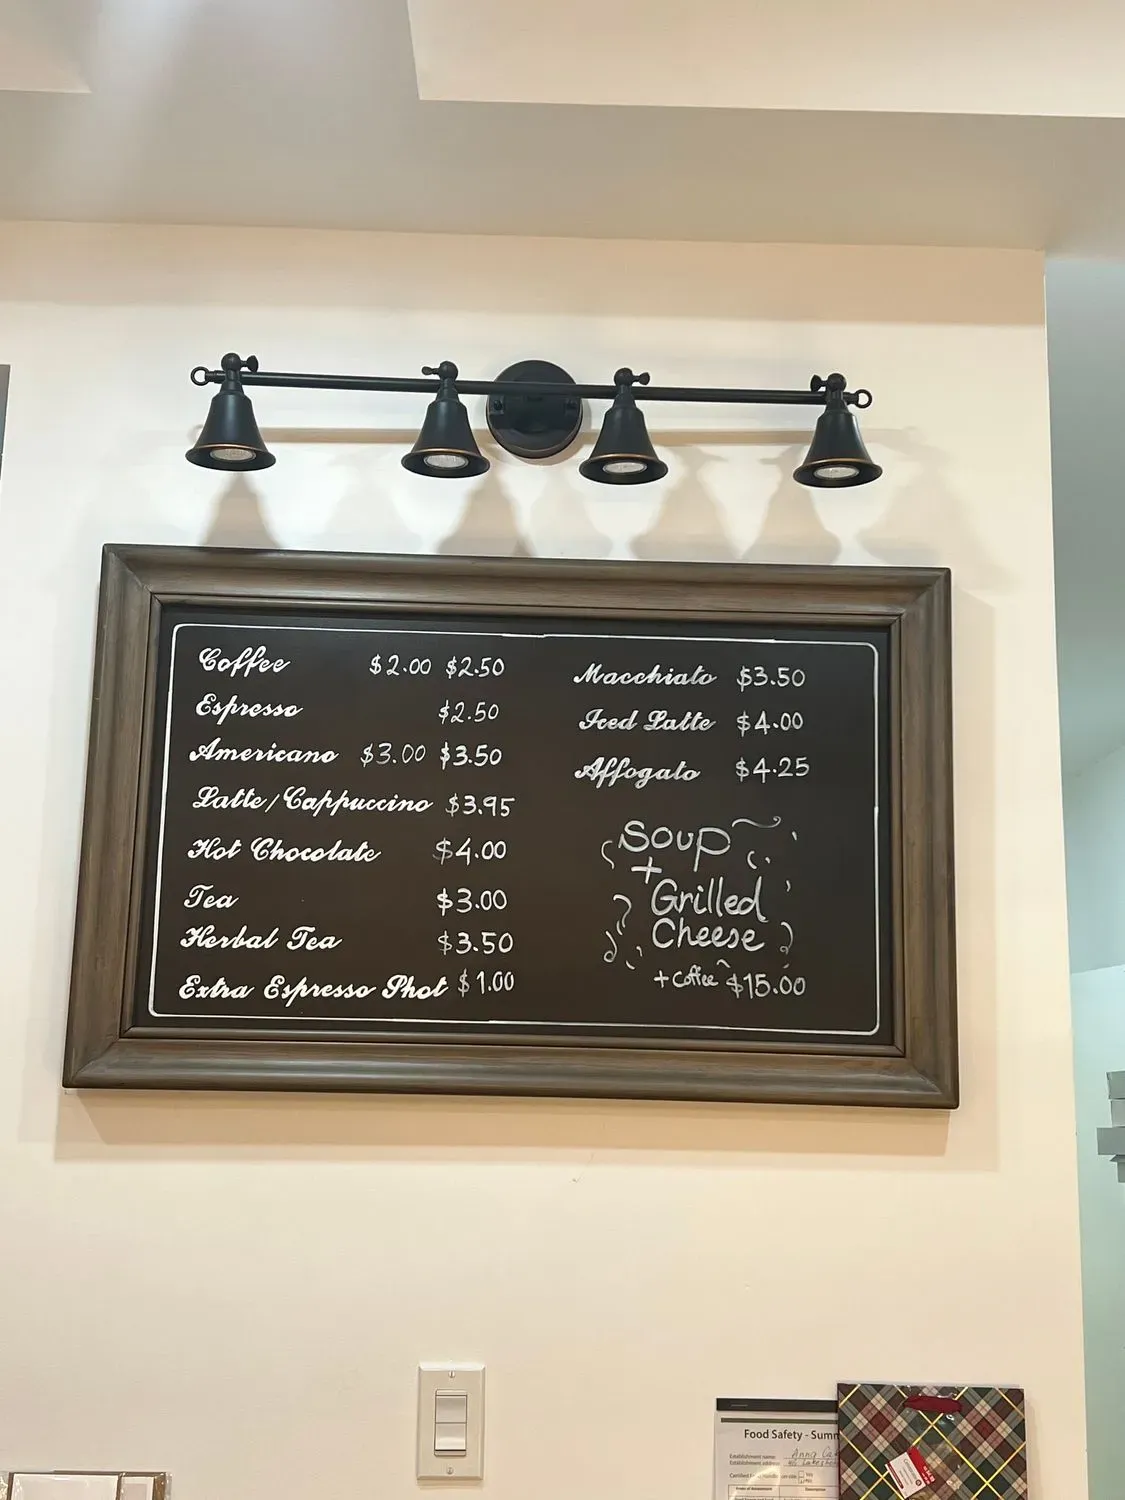 Coffee $2.00 $2.50
Espresso $2.50
Americano $3.00 $3.50
Latte/Cappuccino $3.95
Hot Chocolate $4.00
Tea $3.00
Herbal Tea $3.50
Extra Espresso Shot $1.00
Macchiato $3.50
Iced Latte $4.00
Affogato $4.25
Soup
+
Grilled
Cheese
+ Coffee $15.00
Food Safety - Summ
Establishment name: Anna
Establishment address: